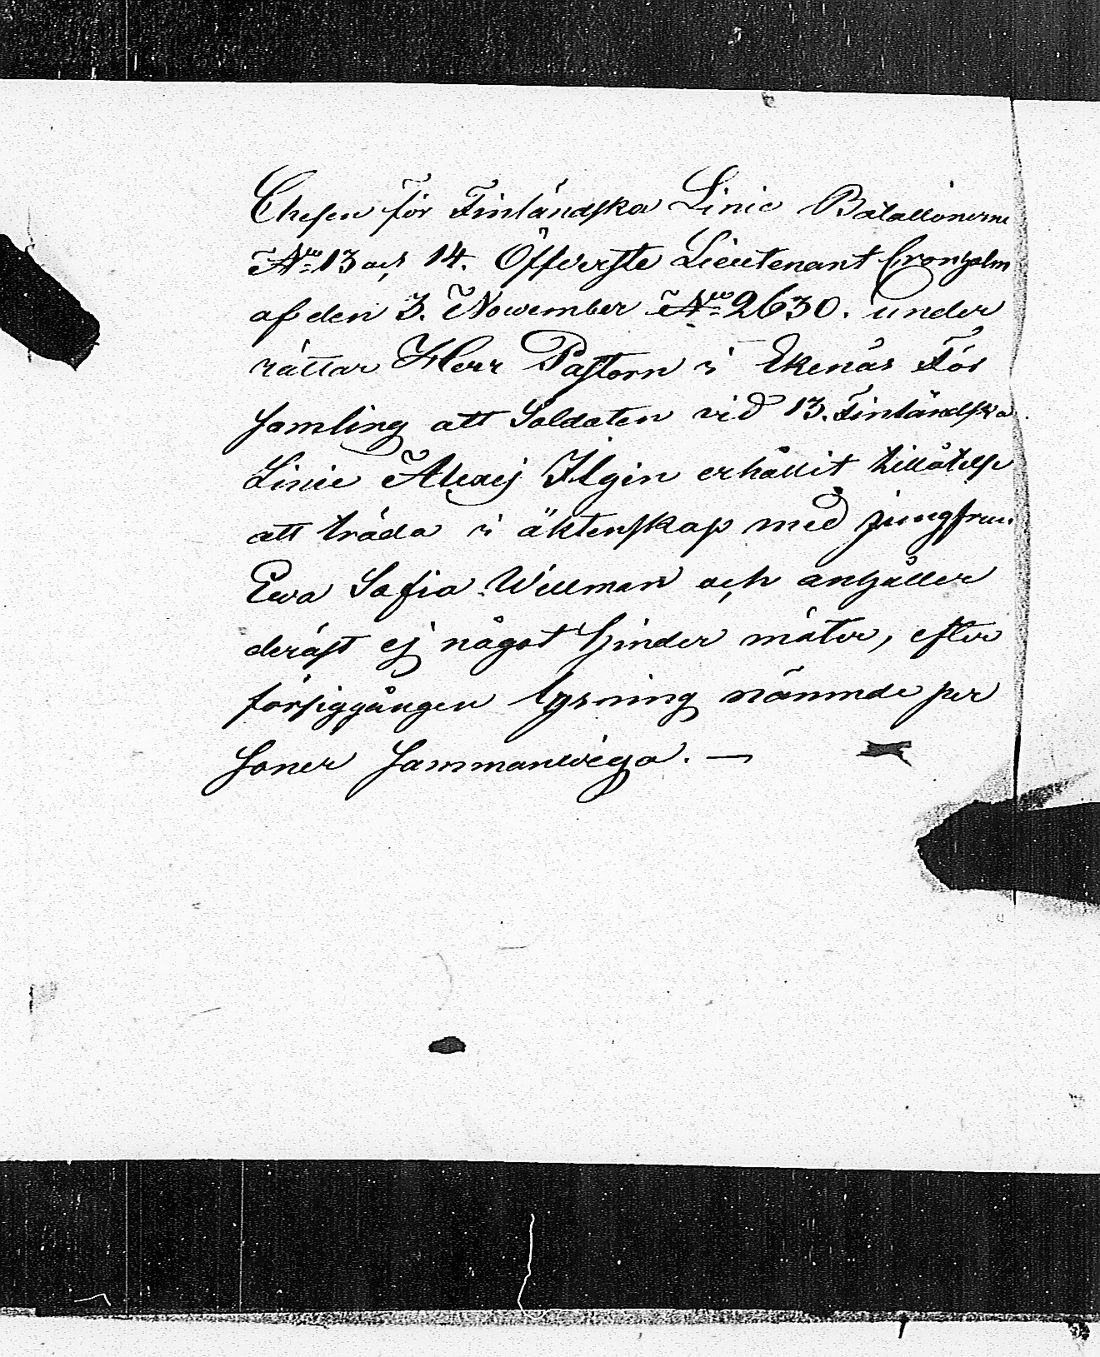 Chefen för Finländska Linie Batallionerne
Nro 13 och 14. Öffverste Lieutenant Cronhelm
af den 3. November Nro 2630. under
rättar Herr Pastorn i Ekenäs För
samling att Soldaten vid 13. Finländska
Linie Alexej Ilgin erhållit tillåtelse
att träda i äktenskap med jungfrun
Ewa Sofia Willman och anhåller
deräst ej något hinder möter, efter
försiggången lysning nämnde per
soner sammanviga. —